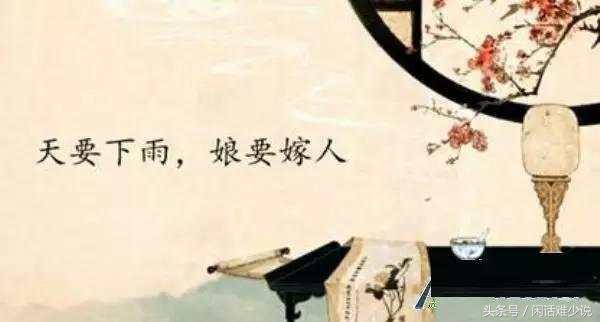 天要下雨，娘要嫁人
头条号 / 闲话难少说